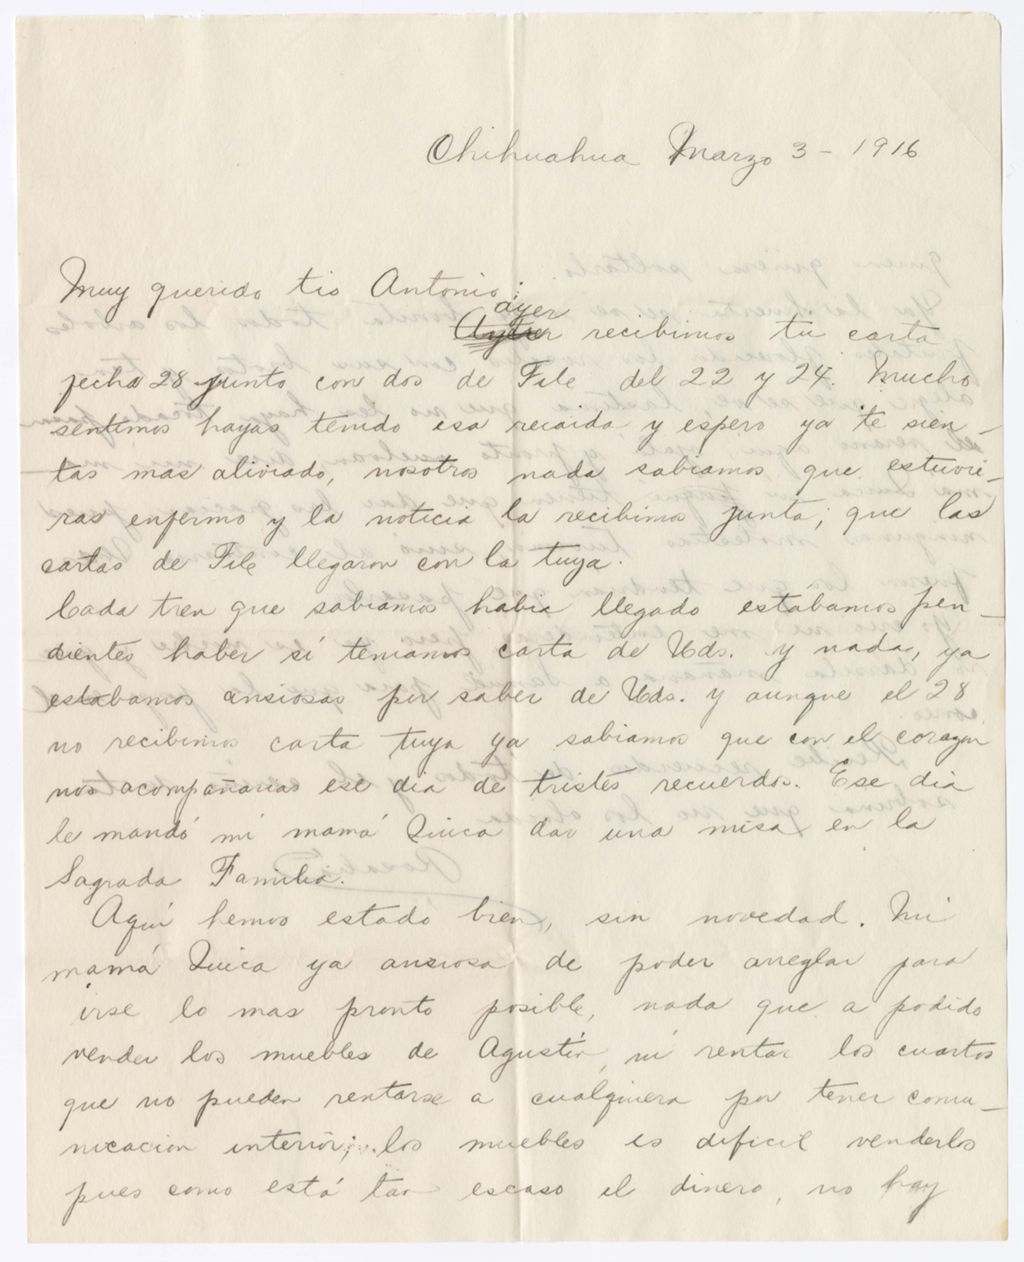 Chihuahua Marzo 3 - 1916
Muy querido tio Antonio:
ayer
recibimos tu carta
fecha 28 junto con dos de File del 22 y 24. Mucho
sentimos hayas tenido esa recaida y espero ya te sien-
tas mas aliviado, nosotros nada sabiamos que estuvie-
ras enfermo y la noticia la recibimos junta, que las
cartas de File llegaron con la tuya.
Cada tren que sabiamos habia llegado estábamos pen-
dientes haber sí teniamos carta de Uds. y nada, ya
estabamos ansiosas por saber de Uds. y aunque el 28
no recibimos carta tuya ya sabiamos que con el corazon
nos acompañarias ese dia de tristes recuerdos. Ese dia
le mandó mi mamá Quica dar una misa en la
Sagrada Familia.
Aquí hemos estado bien, sin novedad. Mi
mamá Quica ya ansiosa de poder arreglar para
irse lo mas pronto posible, nada que a podido
vender los muebles de Agustín, ni rentar los cuartos
que no pueden rentarse a cualquiera por tener comu-
nicacion interior; los muebles es dificil venderlos
pues como está tan escaso el dinero, no hay